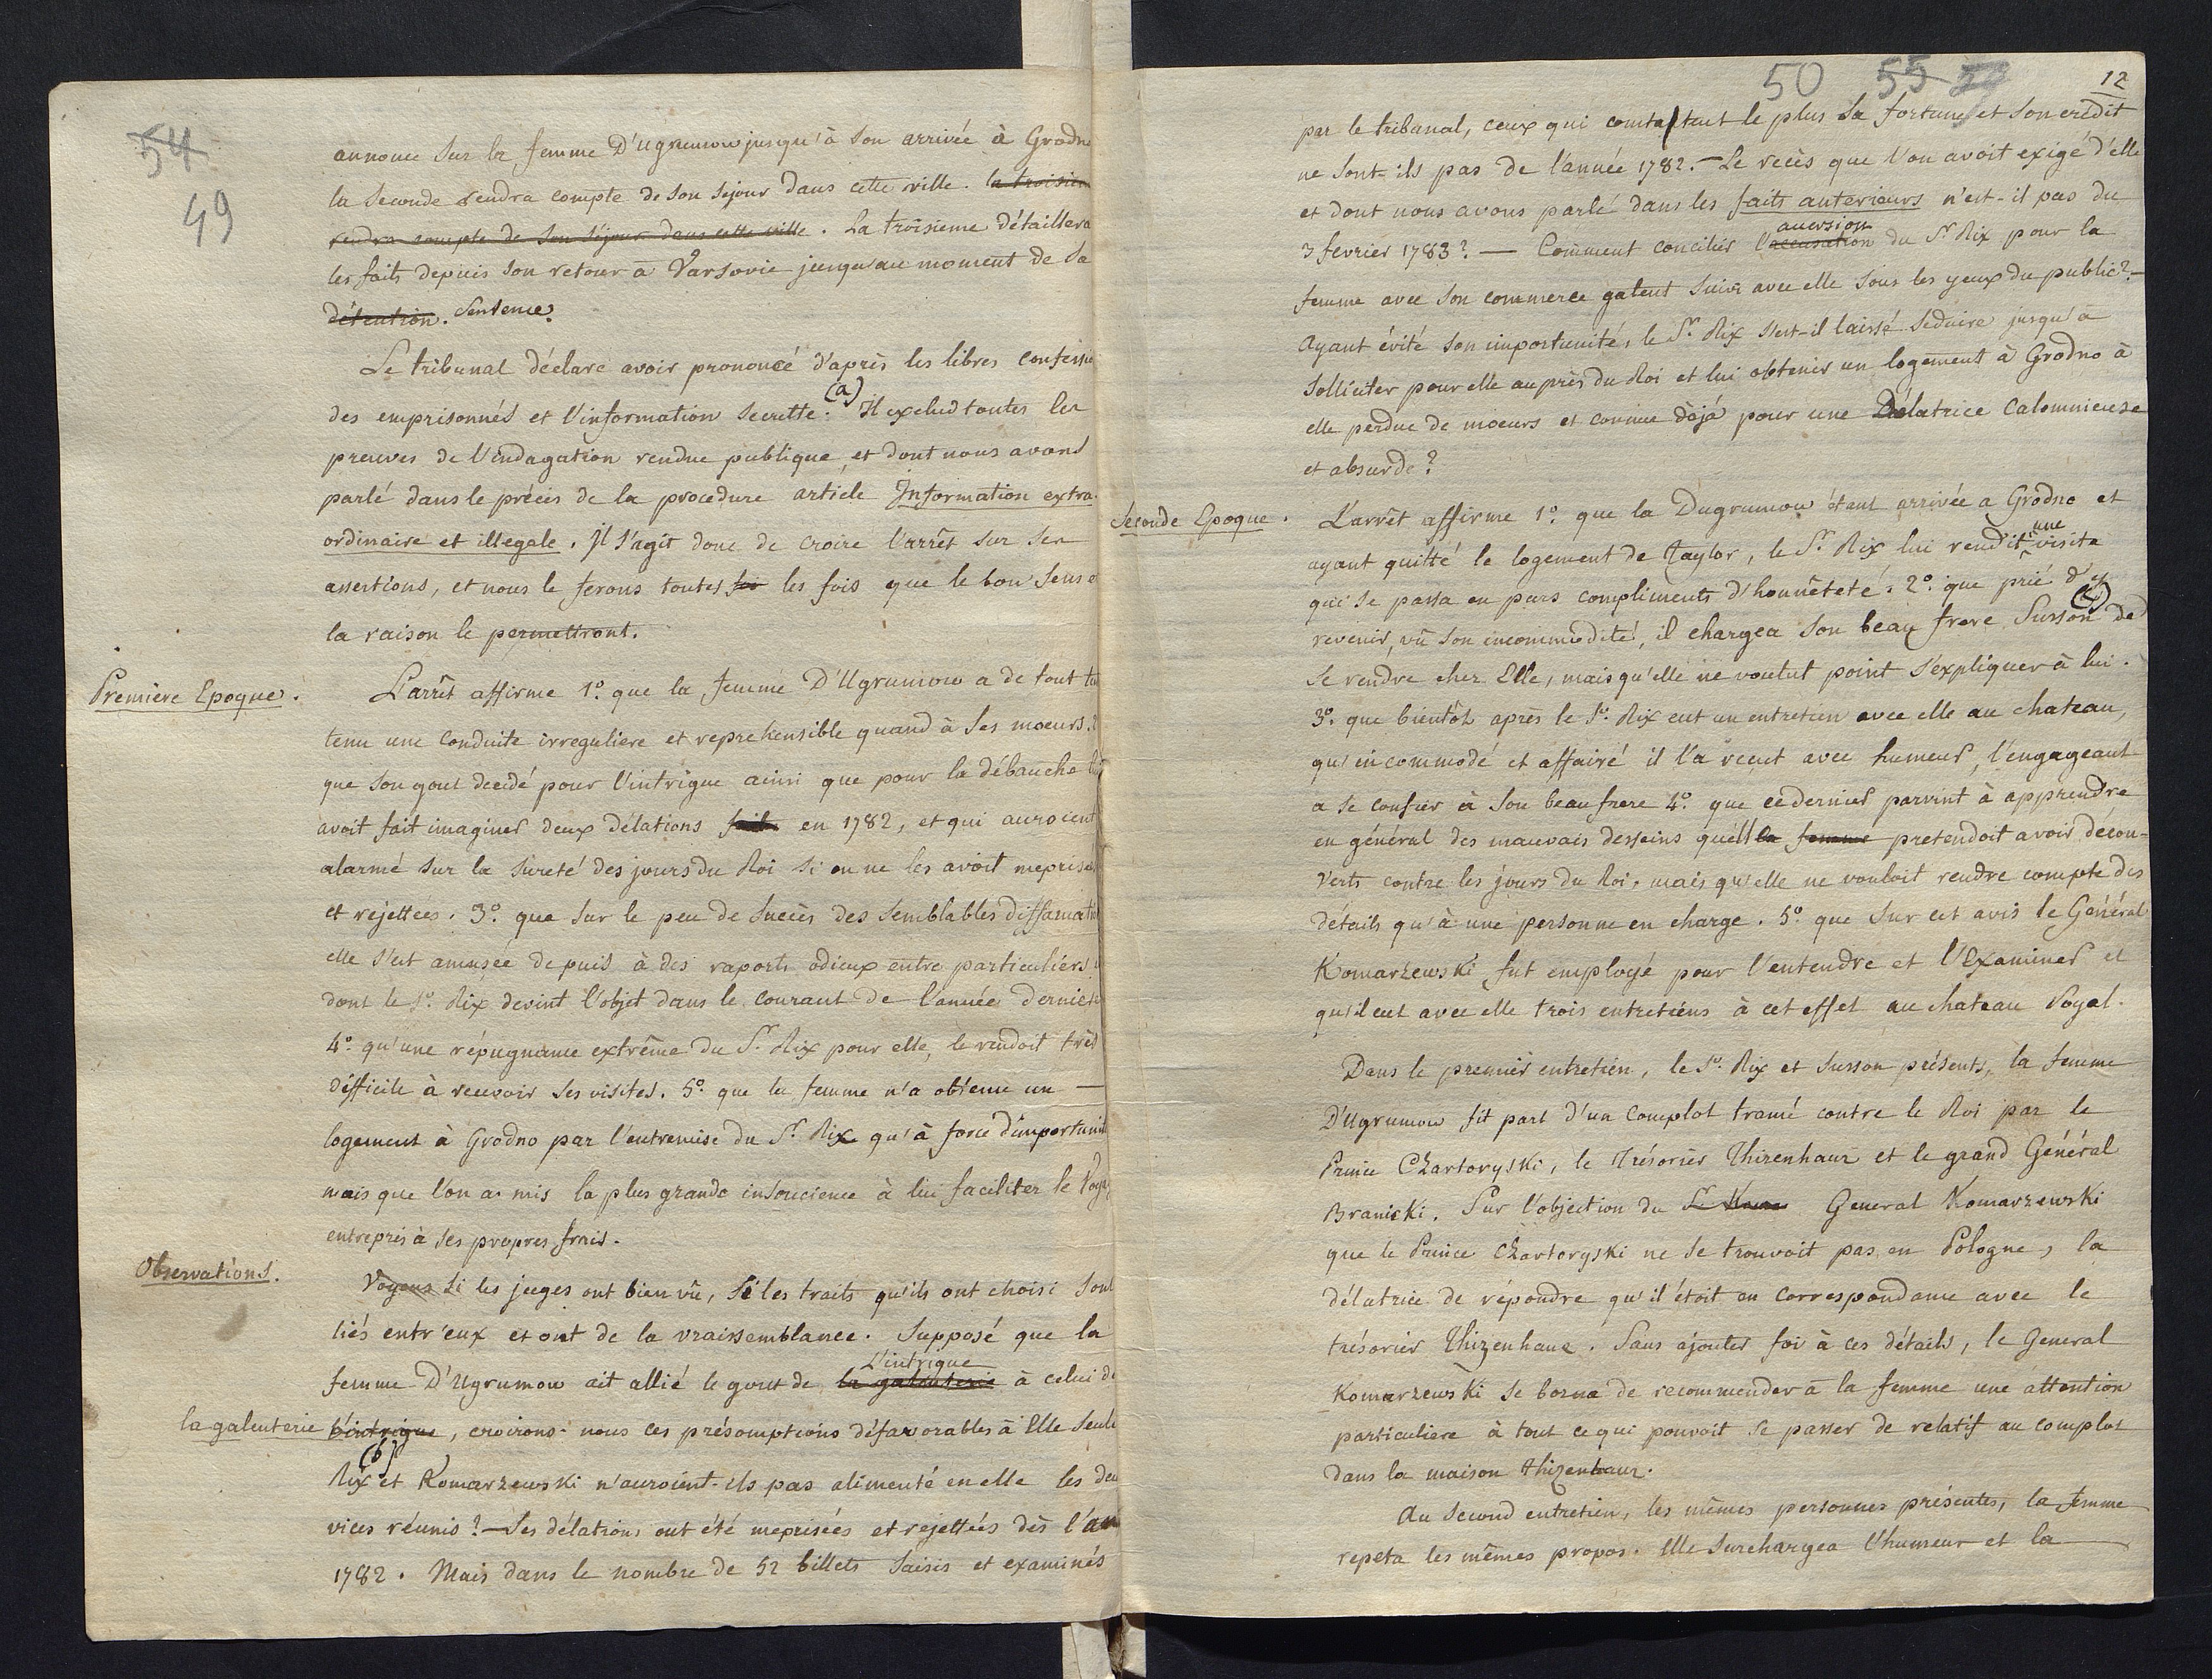 54
49
annonce sur la femme D'Ugrumow jusqu'à son arrivée à Grodno
la seconde rendra compte de son sejour dans cette ville. la troisiem
rendra compte de son séjour dans cette ville. La troisieme détaillera
les faits depuis son retour à Varsovie jusqu'au moment de sa
détention. Sentence.
Le tribunal déclare avoir prononcé d'après les libres confessio
des emprisonnés et l'information secrette. (a) Il exclud toutes les
preuves de l'indagation rendue publique, et dont nous avons
parlé dans le précis de la procedure article Information extra-
ordinaire et illegale. Il s'agit donc de croire l'arrêt sur ses
assertions, et nous le ferons toutes foi les fois que le bon sens e
la raison le permettront.
Premiere Epoque.
L'arrêt affirme 1º. que la femme D'Ugrumow a de tout te
tenu une conduite irreguliere et reprehensible quand à ses moeurs. 2
que son gout decidé pour l'intrigue ainsi que pour la débauche lui
avoit fait imaginer deux délations faite en 1782, et qui auroient
alarmé sur la sûreté des jours du Roi si on ne les avoit meprisé
et rejettees. 3º. que sur le peu de succès des semblables diffamati
elle s'est amusée depuis à des raports odieux entre particuliers
dont le Sr. Rix devint l'objet dans le courant de l'année dernier
4º. qu'une répugnance extrême du Sr. Rix pour elle, le rendoit très
difficile à recevoir ses visites. 5º. que la femme n'a obtenu un —
logement à Grodno par l'entremise du Sr. Rix qu'à force d'importunit
mais que l'on a mis la plus grande insoucience à lui faciliter le Voya
entrepris à ses propres frais.
Observations.
Voyons si les juges ont bien vû, si les traits qu'ils ont choisi sont
liés entr'eux et ont de la vraissemblance. Supposé que la
L'intrigue
femme D'Ugrumow ait allié le gout de la galanterie à celui de
la galenterie l'intrigue, croirons-nous ces présomptions défavorables à Elle seule
(b)
Rix et Komarzewski n'auroient-ils pas alimenté en elle les deu
vices réunis? — Ses délations ont été meprisées et rejettées dès l'an
1782. Mais dans le nombre de 52 billets saisis et examinés
50 55 12
par le tribunal, ceux qui constatent le plus sa fortune et son crédit
ne sont-ils pas de l'année 1782. — Le recès que l'on avoit exigé d'elle
et dont nous avons parlé dans les faits anterieurs n'est-il pas du
aversion
3 fevrier 1783? — Comment concilier l'accusation du Sr Rix pour la
femme avec son commerce galent suivi avec elle sous les yeux du public? —
Ayant évité son importunité, le Sr. Rix s'est-il laissé seduire jusqu'à
solliciter pour elle auprès du Roi et lui obtenir un logement à Grodno à
elle perdue de moeurs et connue déjà pour une Délatrice calomnieuse
et absurde?
Seconde Epoque.
L'arrêt affirme 1º. que la Dugrumow étant arrivée a Grodno et
une
ayant quitté le logement de Taylor, le Sr. Rix lui rendit visite
qui se passa en purs compliments d'honnêteté. 2º. que prié d'y
(c)
revenir, vû son incommodité, il chargea son beau frere Surson de
se rendre chez Elle, mais qu'elle ne voulut point s'expliquer à lui.
3º. que bientôt après le Sr. Rix eut un entretien avec elle au chateau,
qu'incommodé et affairé il l'a recut avec humeur, l'engageant
à se confier à son beau frere 4º. que ce dernier parvint à apprendre
en général des mauvais desseins qu'elle la femme pretendoit avoir décou-
verts contre les jours du Roi, mais qu'elle ne vouloit rendre compte des
détails qu'à une personne en charge. 5º. que sur cet avis le Général
Komarzewski fut employé pour l'entendre et l'Examiner et
qu'il eut avec elle trois entretiens à cet effet au chateau Royal.
Dans le premier entretien, le Sr. Rix et Susson présents, la femme
D'Ugrumow fit part d'un complot tramé contre le Roi par le
Prince Czartoryski, le Trésorier Thizenhauz et le grand Général
Branicki. Sur l'objection du Sr Koma General Komarzewski
que le Prince Czartoryski ne se trouvoit pas en Pologne, la
délatrice de répondre qu'il étoit en correspondance avec le
trésorier Thizenhauz. Sans ajouter foi à ces détails, le General
Komarzewski se borna de recommender à la femme une attention
particuliere à tout ce qui pouvoit se passer de relatif au complot
dans la maison thizenhauz.
Au second entretien, les mêmes personnes présentes, la femme
repeta les mêmes propos. Elle surchargea l'humeur et la